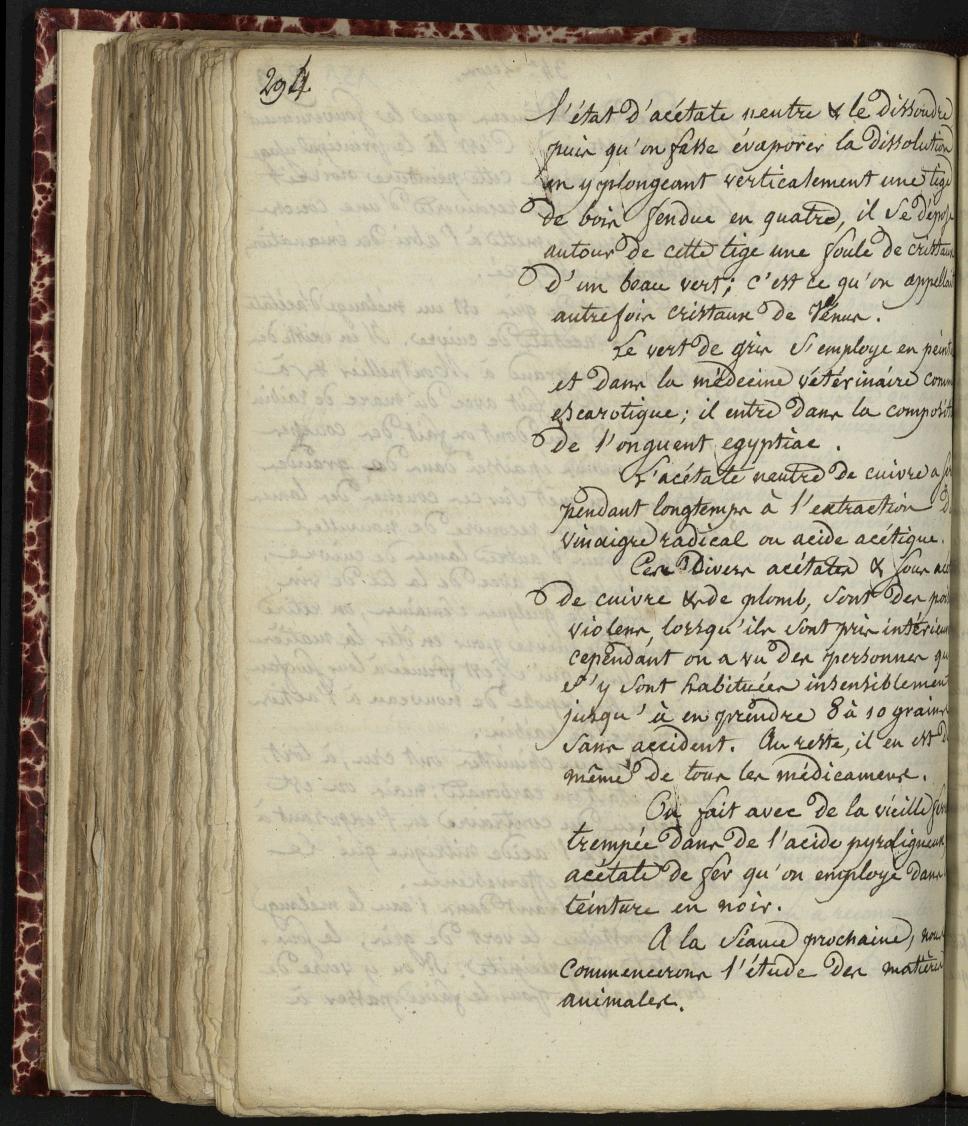 294.
l'état d'acétate neutre & le dissoudre
puis qu'on fasse évaporer la dissolution
en y plongeant verticalement une tige
de bois fendue en quatre, il se dépos
autour de cette tige une foule de cristaux
d'un beau vert; c'est ce qu'on appellait
autrefois cristaux de Vénus.
Le vert de gris s'employe en peint
et dans la médecine vétérinaire comm
escarotique; il entre dans la composit
de l'onguent egyptiac.
L'acétate neutre de cuivre a
pendant longtemps à l'extraction d
vinaigre radical ou acide acétique.
Ces divers acétates & sous acé
de cuivre & de plomb, sont des poi
violens, lorsqu'ils sont pris intérieu
cependant on a vu des personnes qu
s'y sont habituées insensiblement
jusqu'à en prendre 8 à 10 grains
sans accident. Au reste, il en est de
même de tous les médicamens.
On fait avec de la vieille fer
trempée dans de l'acide pyroligneux
acétate de fer qu'on employe dans
teinture en noir.
A la séance prochaine, nous
commencerons l'étude des matières
animales.